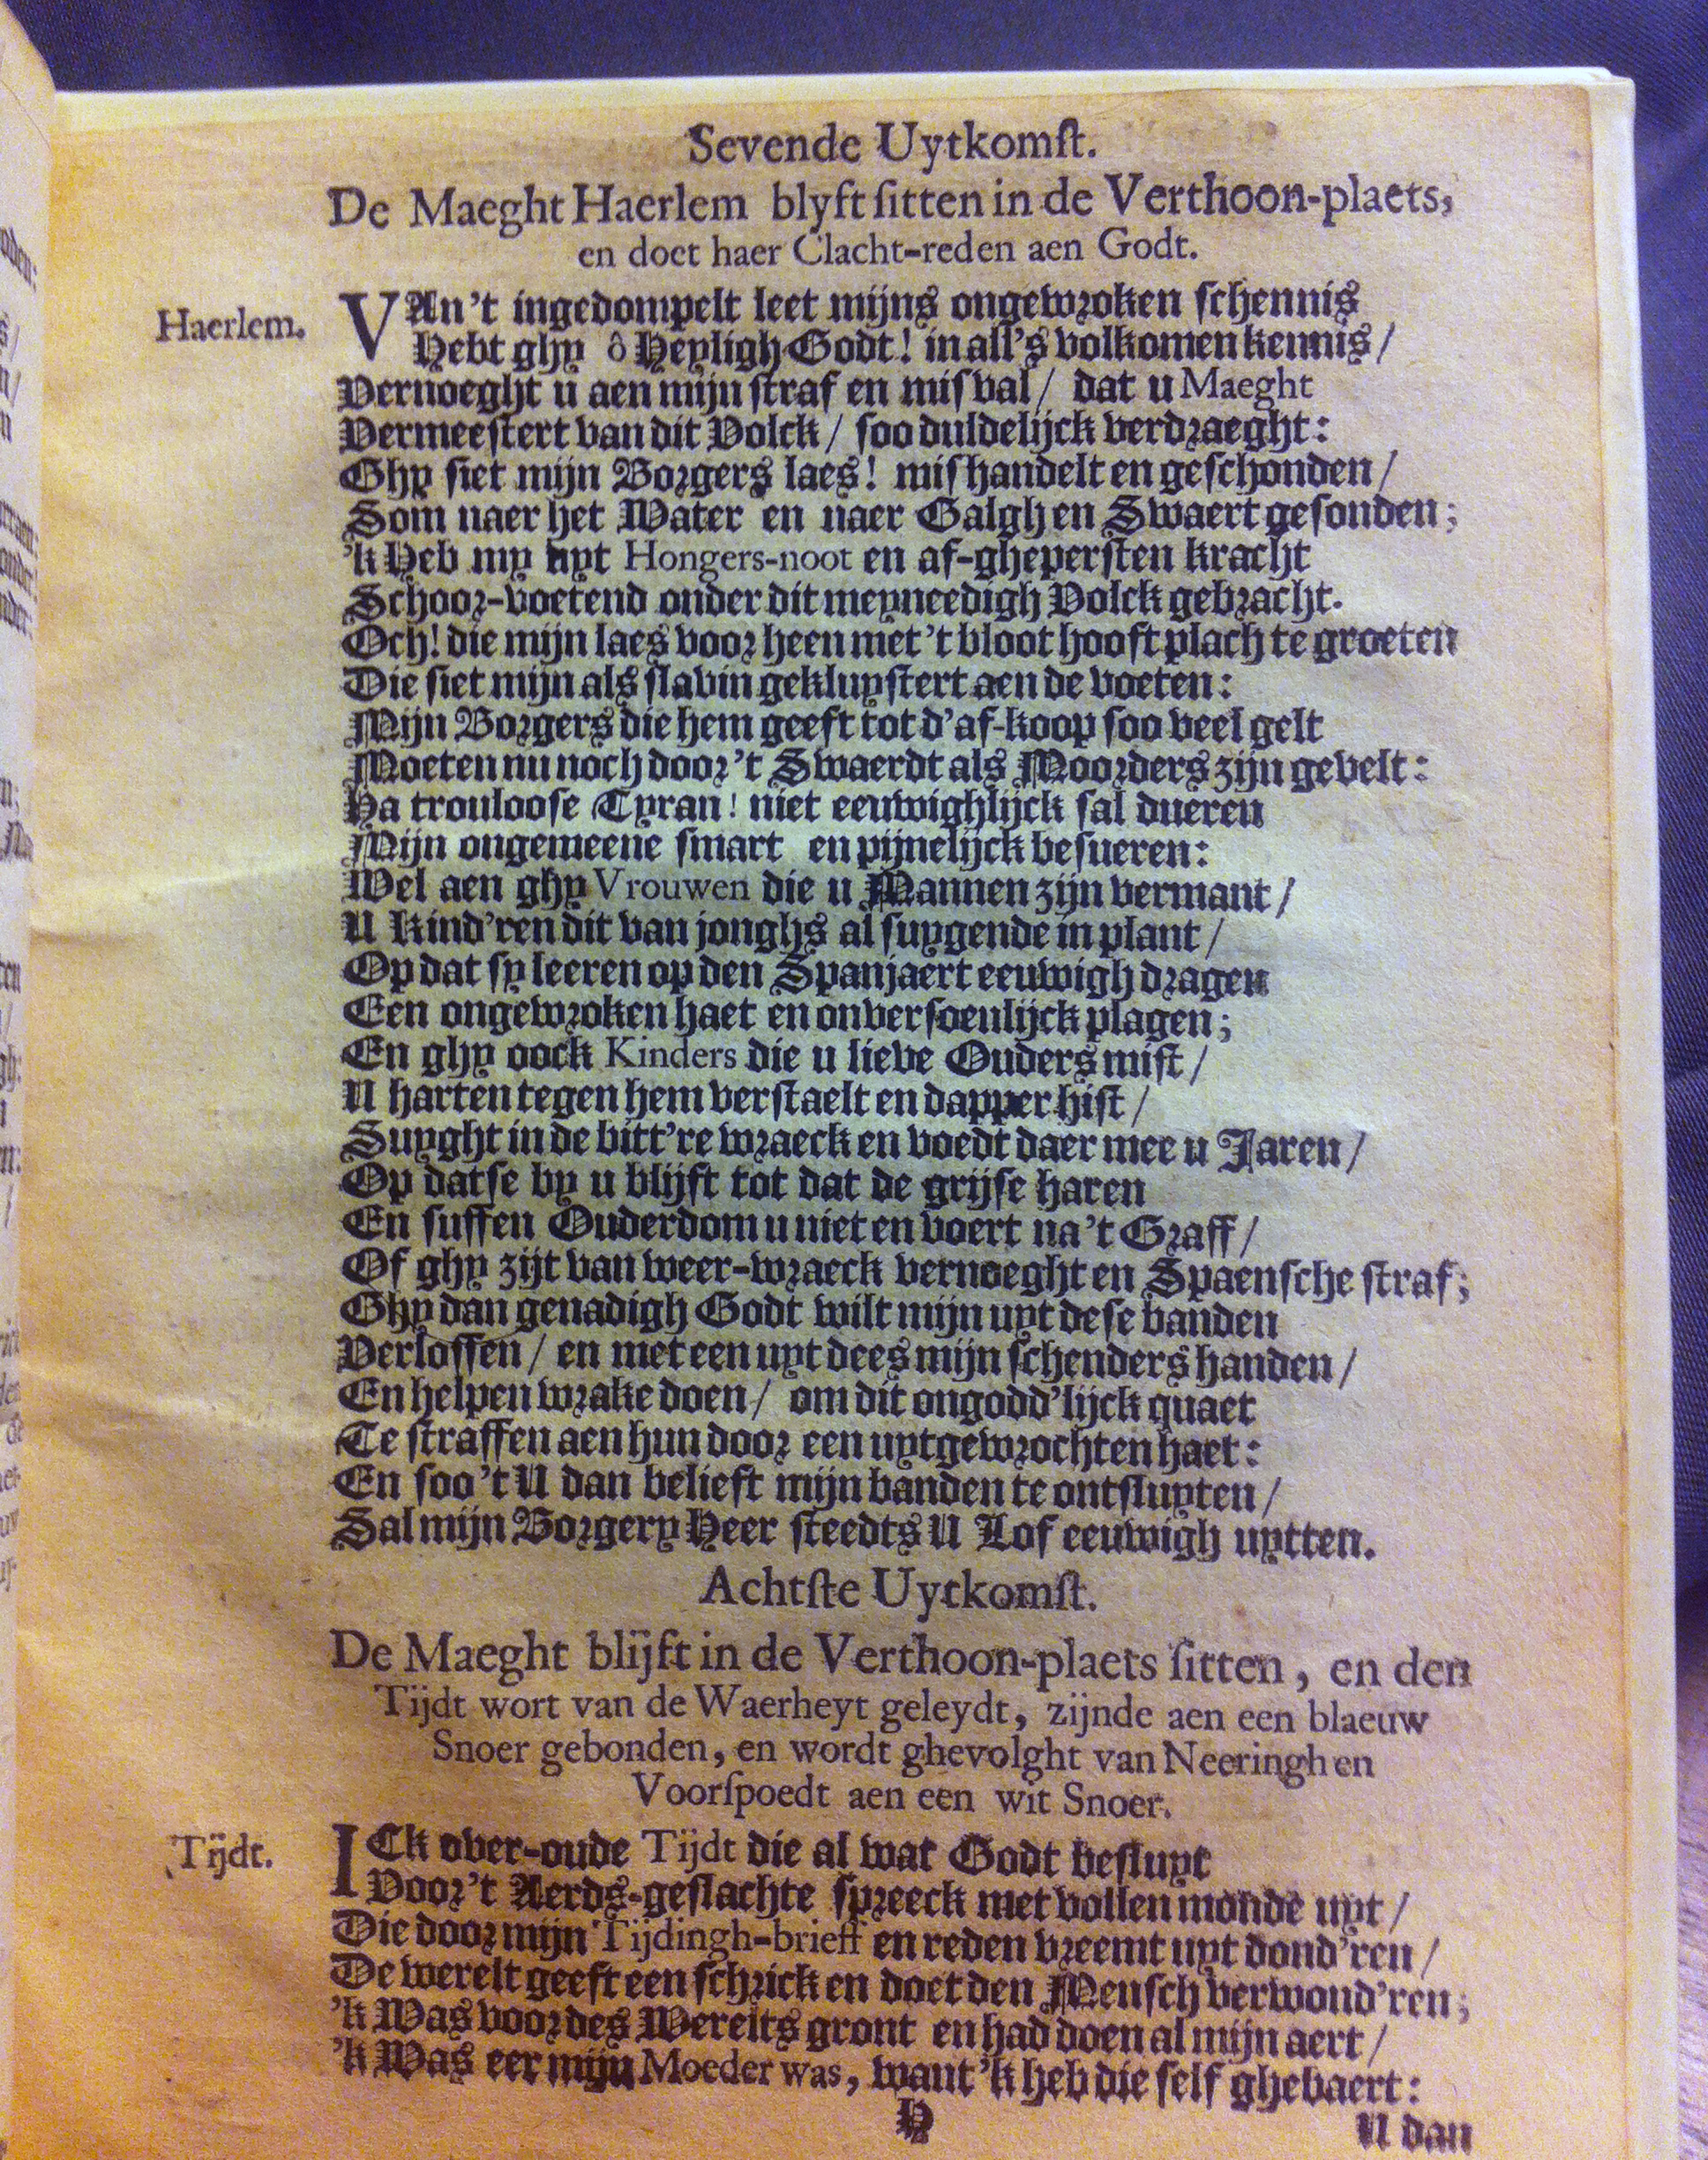 Sevende Uytkomſt.
De Maeght Haerlem blyft ſitten in de Verthoon-plaets,
en doet haer Clacht-reden aen Godt.
Haerlem.
VAn't ingedompelt leet mijns ongewroken ſchennis
Hebt ghy ô Heyligh Godt! in all's volkomen kennis/
Vernoeght u aen mijn ſtraf en misval/ dat u Maeght
Vermeeſtert van dit Volck/ ſoo duldelijck verdraeght:
Ghy ſiet mijn Borgers laes! mishandelt en geſchonden/
Som naer het Water en naer Galgh en Swaert geſonden;
'k Heb my uyt Hongers-noot en af-gheperſten kracht
Schoor-voetend onder dit meyneedigh Volck gebracht.
Och! die mijn laes voor heen met 't bloot hooft plach te groeten
Die ſiet mijn als ſlavin gekluyſtert aen de voeten:
Mijn Borgers die hem geeft tot d'af-koop ſoo veel gelt
Moeten nu noch door 't Swaerdt als Moorders zijn gevelt:
Ha troulooſe Tyran! niet eeuwighlijck ſal dueren
Mijn ongemeene ſmart en pijnelijck beſueren:
Wel aen ghy Vrouwen die u Mannen zijn vermant/
U Kind'ren dit van jonghs al ſuygende in plant/
Op dat ſy leeren op den Spanjaert eeuwigh dragen
Een ongewroken haet en onverſoenlijck plagen;
En ghy oock Kinders die u lieve Ouders miſt/
U harten tegen hem verſtaelt en dapper hiſt/
Suyght in de bitt're wraeck en voedt daer mee u Jaren/
Op datſe by u blijft tot dat de grijſe haren
En ſuffen Ouderdom u niet en voert na 't Graff/
Of ghy zijt van weer-wraeck vernoeght en Spaenſche ſtraf;
Ghy dan genadigh Godt wilt mijn uyt deſe banden
Verloſſen/ en met een uyt dees mijn ſchenders handen/
En helpen wrake doen/ om dit ongodd'lijck quaet
Te ſtraffen aen hun door een uytgewrochten haet:
En ſoo 't U dan belieft mijn banden te ontſluyten/
Sal mijn Borgery Heer ſteedts U Lof eeuwigh uytten.
Achtſte Uytkomſt.
De Maeght blijft in de Verthoon-plaets ſitten, en den
Tijdt wort van de Waerheyt geleydt, zijnde aen een blaeuw
Snoer gebonden, en wordt ghevolght van Neeringh en
Voorſpoedt aen een wit Snoer.
Tijdt.
ICk over-oude Tijdt die al wat Godt beſluyt
Voor 't Aerds-geſlachte ſpreeck met vollen monde uyt/
Die door mijn Tijdingh-brieff en reden vreemt uyt dond'ren/
De werelt geeft een ſchrick en doet den Menſch verwond'ren;
'k Was voor des Werelts gront en had doen al mijn aert/
'k Was eer mijn Moeder was, want 'k heb die ſelf ghebaert:
H
U dan